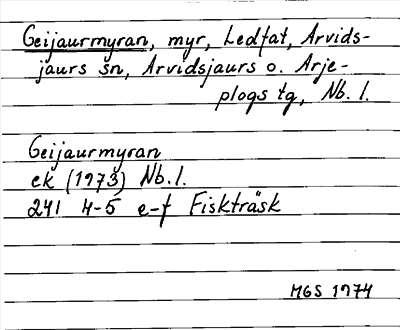 Geijaurmyran, myr, Ledfat, Arvids-
jaurs sn, Arvidsjaurs o. Arje-
plogs tg, Nb. l.
Geijaurmyran
ek (1973) Nb. l.
241 4-5 e-f Fiskträsk
MGS 1974